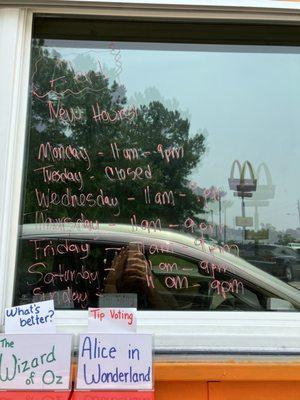 New Hours!
Monday - 11am - 9pm
Tuesday - Closed
Wednesday - 11am - 9pm
Thursday - 11am - 9pm
Friday - 11am - 9pm
Saturday - 11am - 9pm
Sunday - 11am - 9pm
What's better?
Tip Voting
The Wizard of Oz
Alice in Wonderland